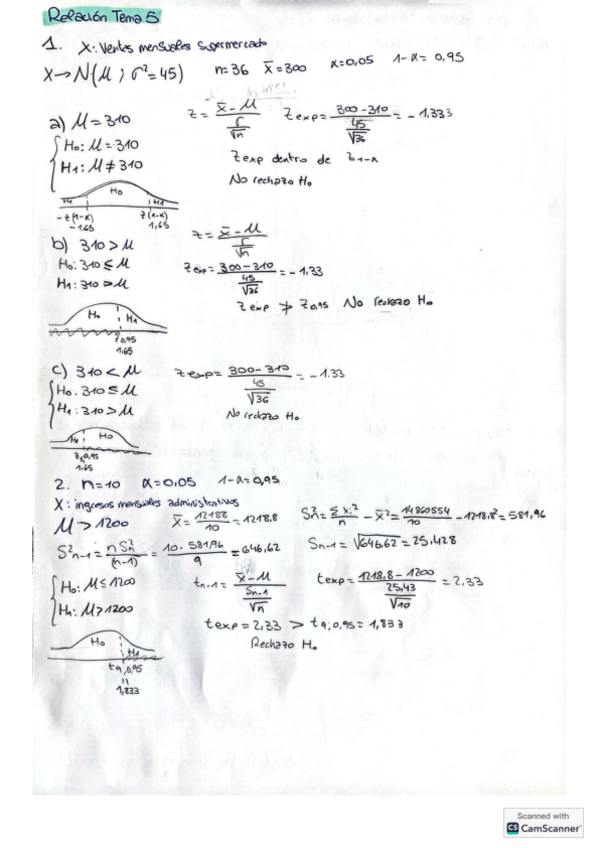 Relación Tema 5
1. X: Ventas mensuales supermercado
X → N(μ ; σ²=45) n=36 x̄=300 α=0,05 1-α=0,95
a) μ=310 Z = (x̄-μ)/(σ/√n) Zexp = (300-310)/(45/√36) = -1,333
H₀: μ=310
H₁: μ≠310
Zexp dentro de z₁₋α
No rechazo H₀
H₁ H₀ H₁
-z(1-α) z(1-α)
-1,65 1,65
b) 310 > μ Z = (x̄-μ)/(σ/√n)
H₀: 310 ≤ μ
H₁: 310 > μ
Zexp = (300-310)/(45/√36) = -1,33
Zexp ≯ Z0,95 No rechazo H₀
H₀ H₁
Z0,95
1,65
c) 310 < μ Zexp = (300-310)/(45/√36) = -1.33
H₀: 310 ≤ μ
H₁: 310 > μ
No rechazo H₀
H₁ H₀
Z0,95
1.65
2. n=10 α=0,05 1-α=0,95
X: ingresos mensuales administrativos
μ > 1200 x̄ = 12188/10 = 1218,8 Sn² = Σxi²/n - x̄² = 14860554/10 - 1218,8² = 581,96
S²n-1 = nSn²/(n-1) = 10·581,96/9 = 646,62 Sn-1 = √646,62 = 25,428
H₀: μ ≤ 1200
H₁: μ > 1200
tn-1 = (x̄-μ)/(Sn-1/√n) texp = (1218,8-1200)/(25,43/√10) = 2,33
texp = 2,33 > t9;0,95 = 1,833
Rechazo H₀
H₀ H₁
t9;0,95
11
1,833
Scanned with
CS CamScanner